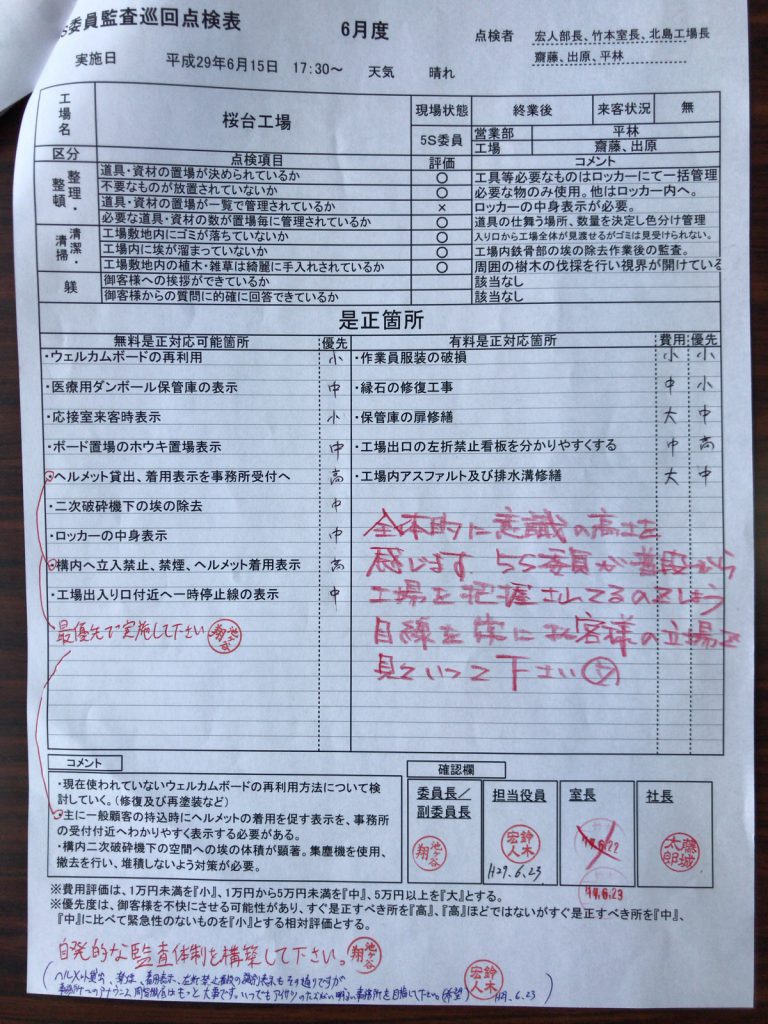 5S委員監査巡回点検表 6月度 点検者 宏人部長、竹本室長、北島工場長
齋藤、出原、平林
実施日 平成29年6月15日 17:30～ 天気 晴れ
工場名 桜台工場 現場状態 終業後 来客状況 無
5S委員 営業部 平林
工場 齋藤、出原
区分 点検項目 評価 コメント
整理・整頓 道具・資材の置場が決められているか ○ 工具等必要なものはロッカーにて一括管理
不要なものが放置されていないか ○ 必要な物のみ使用。他はロッカー内へ。
道具・資材の置場が一覧で管理されているか × ロッカーの中身表示が必要。
必要な道具・資材の数が置場毎に管理されているか ○ 道具の仕舞う場所、数量を決定し色分け管理
清潔・清掃 工場敷地内にゴミが落ちていないか ○ 入り口から工場全体が見渡せるがゴミは見受けられない。
工場内に埃が溜まっていないか ○ 工場内鉄骨部の埃の除去作業後の監査。
工場敷地内の植木・雑草は綺麗に手入れされているか ○ 周囲の樹木の伐採を行い視界が開けている
躾 御客様への挨拶ができているか 該当なし
御客様からの質問に的確に回答できているか 該当なし
是正箇所
無料是正対応可能箇所 優先 有料是正対応箇所 費用 優先
・ウェルカムボードの再利用 小 ・作業員服装の破損 小 小
・医療用ダンボール保管庫の表示 中 ・縁石の修復工事 中 小
・応接室来客時表示 小 ・保管庫の扉修繕 大 中
・ボード置場のホウキ置場表示 中 ・工場出口の左折禁止看板を分かりやすくする 中 高
・ヘルメット貸出、着用表示を事務所受付へ 高 ・工場内アスファルト及び排水溝修繕 大 中
・二次破砕機下の埃の除去 中
・ロッカーの中身表示 中
・構内へ立入禁止、禁煙、ヘルメット着用表示 高
・工場出入り口付近へ一時停止線の表示 中
最優先で実施して下さい 池ヶ谷翔
全体的に意識の高さを
感じます 5S委員が普段から
工場を把握されてるのでしょう
目線を常にお客様の立場で
見ていって下さい
コメント
・現在使われていないウェルカムボードの再利用方法について検
討していく。(修復及び再塗装など)
・主に一般顧客の持込時にヘルメットの着用を促す表示を、事務所
の受付付近へわかりやすく表示する必要がある。
・構内二次破砕機下の空間への埃の体積が顕著。集塵機を使用、
撤去を行い、堆積しないよう対策が必要。
確認欄
委員長／副委員長 担当役員 室長 社長
池ヶ谷翔 鈴木宏人 藤城太郎
H29.6.23
※費用評価は、1万円未満を『小』、1万円から5万円未満を『中』、5万円以上を『大』とする。
※優先度は、御客様を不快にさせる可能性があり、すぐ是正すべき所を『高』、『高』ほどではないがすぐ是正すべき所を『中』、
『中』に比べて緊急性のないものを『小』とする相対評価とする。
自発的な監査体制を構築して下さい。 池ヶ谷翔
(ヘルメット貸出、着用表示、左折禁止看板の 表示もその通りですが
事務所へのアナウンス もっと大事です。いつでもアイサツのたえない明るい事務所を目指して下さい。(希望) 鈴木宏人 H29.6.23)